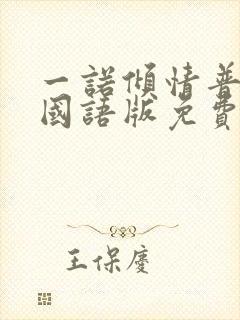 一諾傾情普
國語版免費
王保慶